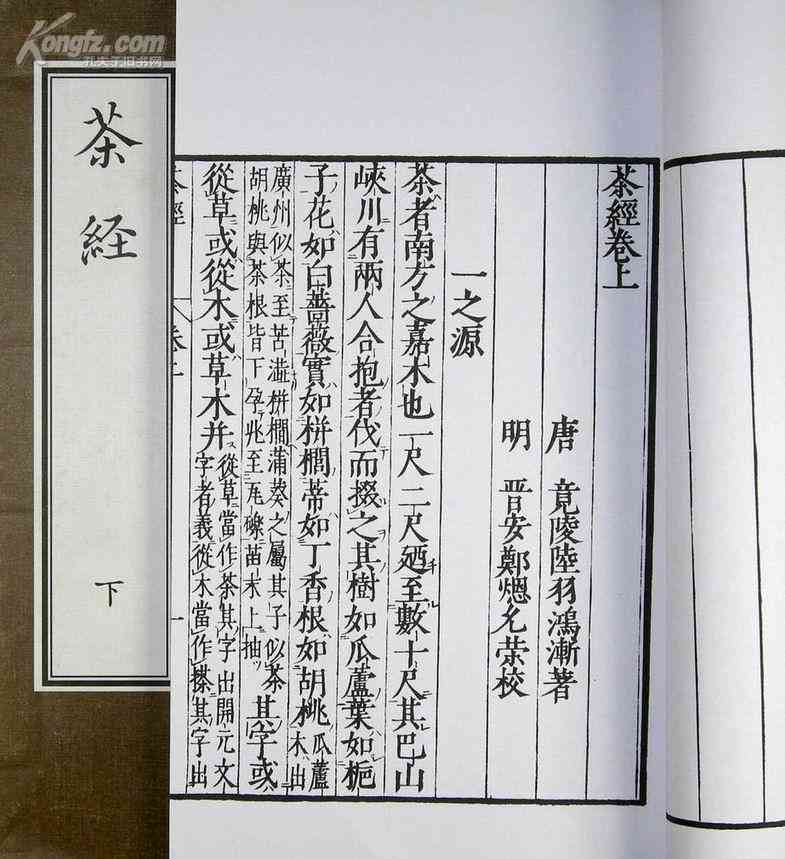 Kongfz.com
孔夫子旧书网
茶経
下
茶經卷上
唐 竟陵陸羽鴻漸著
明 晉安鄭熜允荣校
一之源
茶者南方之嘉木也一尺二尺廼至數十尺其巴山
峽川有兩人合抱者伐而掇之其樹如瓜蘆葉如梔
子花如白薔薇實如栟櫚蒂如丁香根如胡桃瓜蘆木出
廣州似茶至苦澁栟櫚蒲葵之屬其子似茶
胡桃與茶根皆下孕兆至瓦礫苗木上抽
其字或
從草或從木或草木并
從草當作茶其字出開元文
字者義從木當作搽其字出
茶經
一